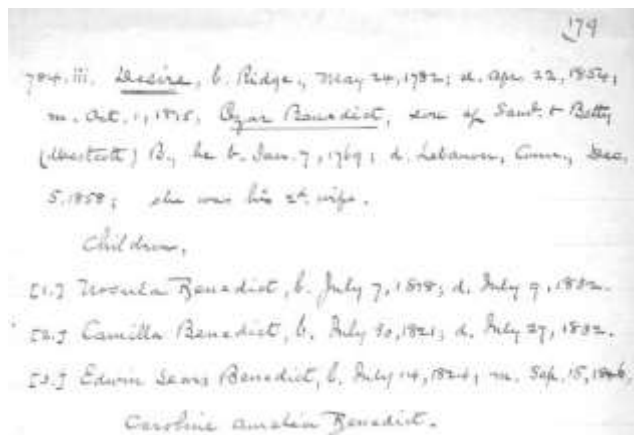 179
784. iii. Desire, b. Ridge., May 24, 1782; d. Apr. 22, 1854;
m. Oct. 1, 1815, Ezar Benedict, son of Saml. & Betty
(Westcott) B., he b. Jan. 7, 1769; d. Lebanon, Conn., Dec.
5, 1858; she was his 2d. wife.
Children,
[1.] Ursula Benedict, b. July 7, 1818; d. July 9, 1832.
[2.] Camilla Benedict, b. July 30, 1821; d. July 27, 1832.
[3.] Edwin Sears Benedict, b. July 14, 1824; m. Sep. 15, 1846,
Caroline Amelia Benedict.